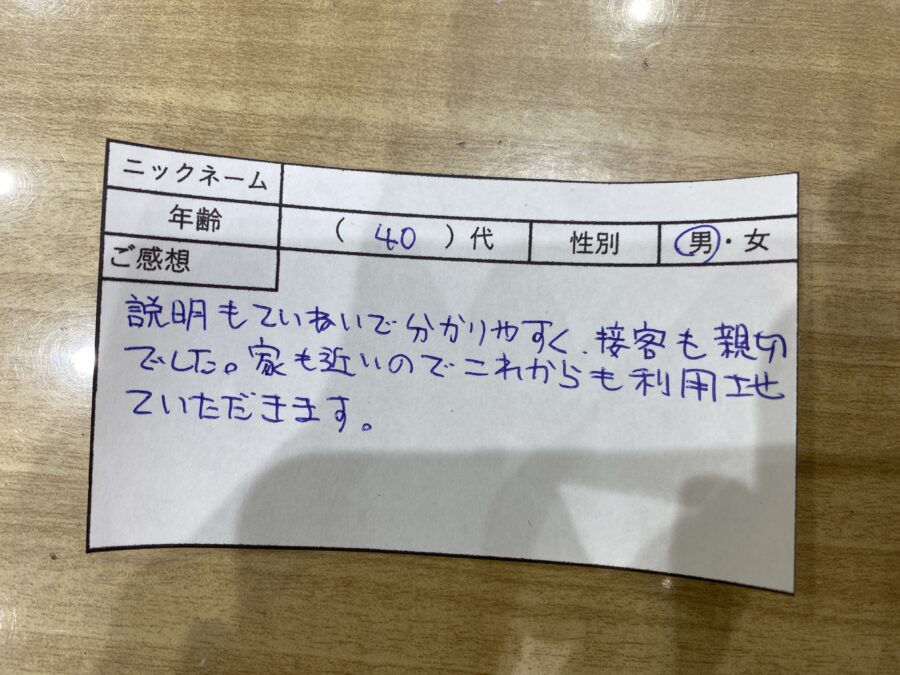 ニックネーム
年齢 ( 40 ) 代 性別 男・女
ご感想
説明もていねいで分かりやすく、接客も親切
でした。家も近いのでこれからも利用させ
ていただきます。